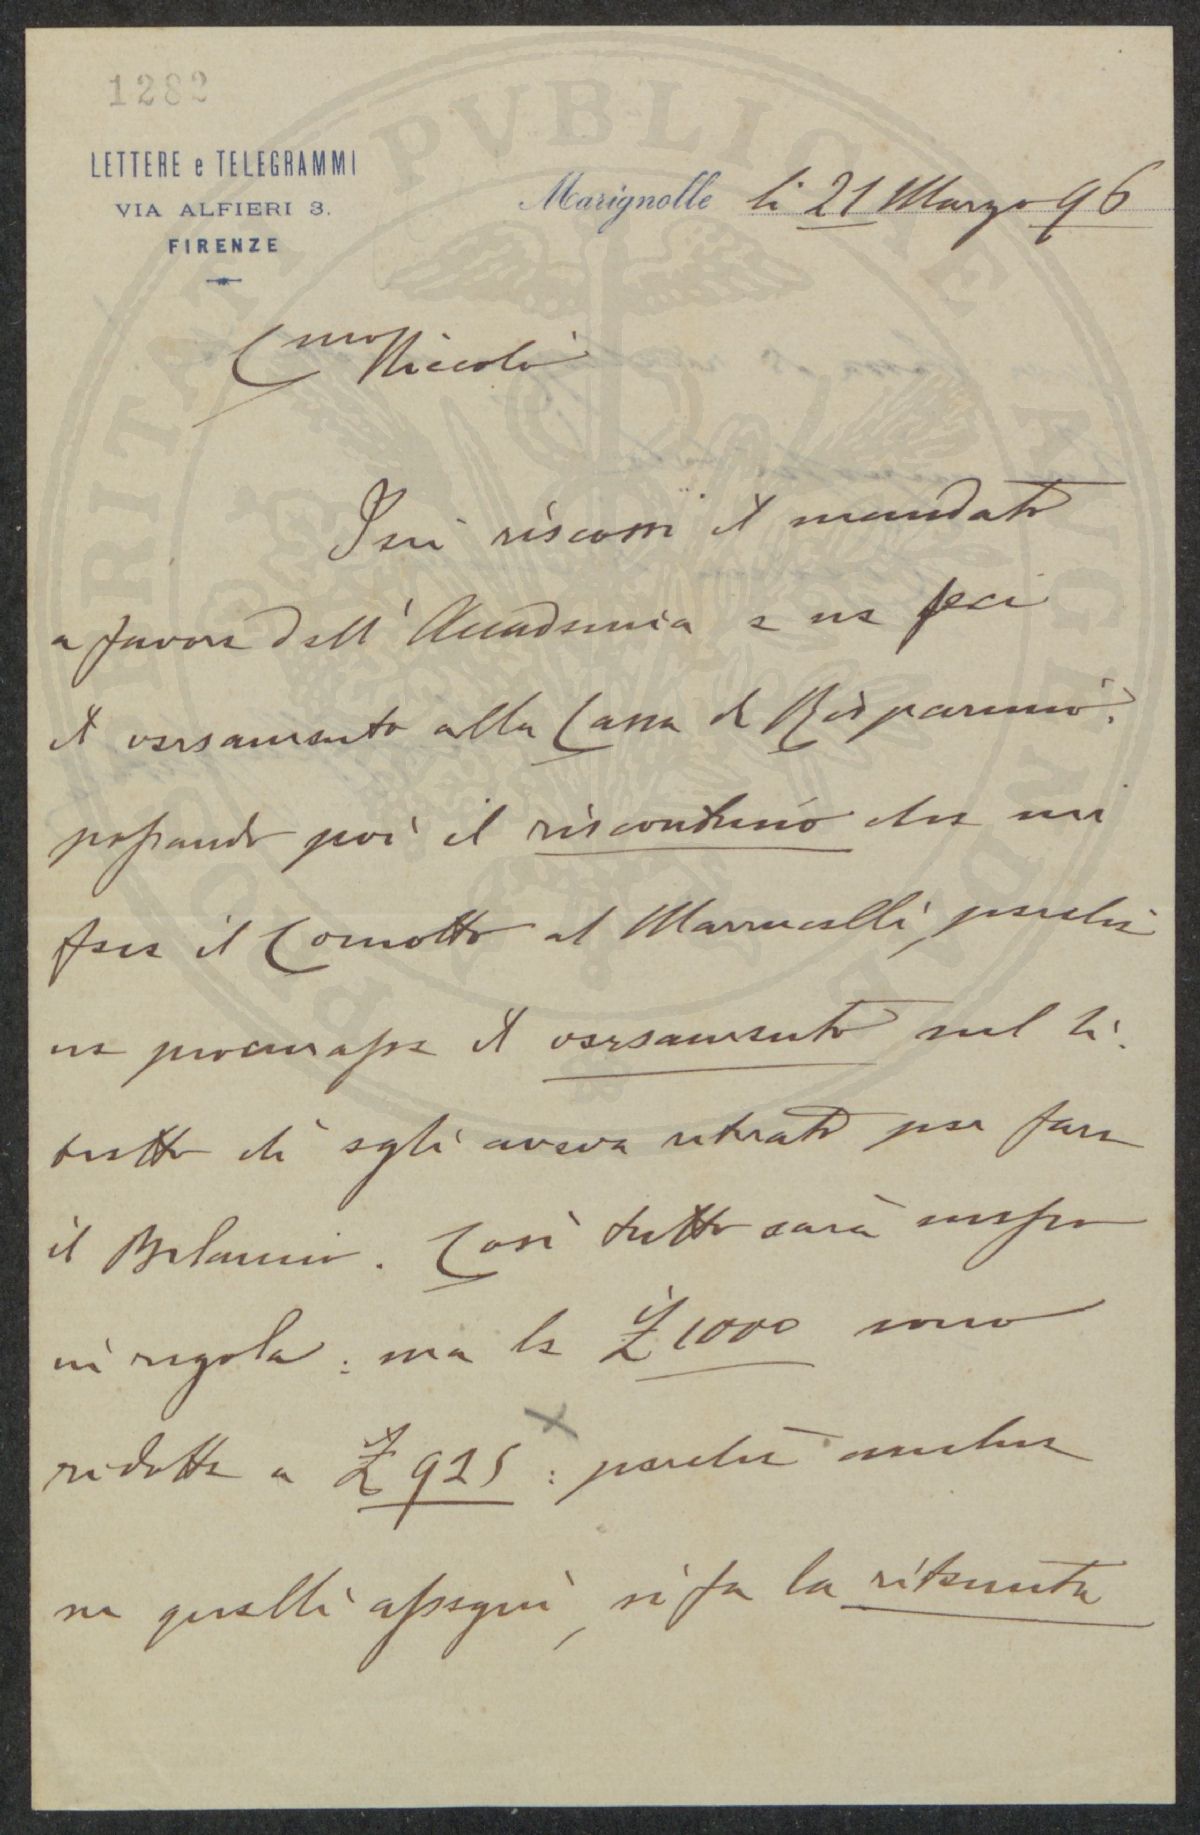 1282
LETTERE e TELEGRAMMI
VIA ALFIERI 3.
FIRENZE
Marignolle li 21 Marzo 96
C.mo Niccolò
Ieri riscossi il mandato
a favore dell'Accademia e ne feci
il versamento alla Cassa di Risparmio:
passando poi il riscontrino che mi
fece il Comotto al Marrucelli, perchè
ne procurasse il versamento sul li-
bretto ch'egli aveva ritirato per fare
il Bilancio. Così tutto sarà messo
in regola: ma le £ 1000 sono
ridotte a £ 925: perchè anche
su quelli assegni, si fa la ritenuta
PRO VERITATE PVBLICAE